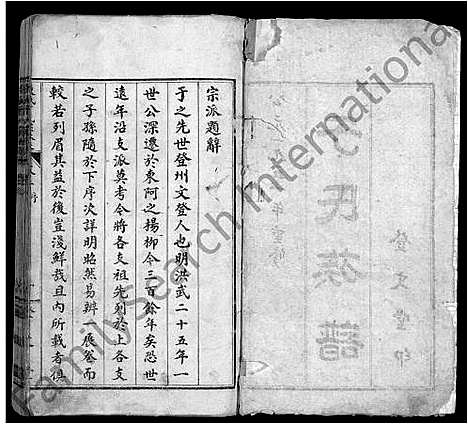 宗派題辭
于之先世登州文登人也明洪武二十五年一
世公深遷於東阿之楊柳今三百餘年矣恐世
遠年沿支派莫考今將各支祖先列於上各支
之子孫隨於下序次詳明昭然易辨展卷而
較若列眉其益於後豈淺鮮哉且內所載者俱
氏族譜
文堂印
FamilySearch International